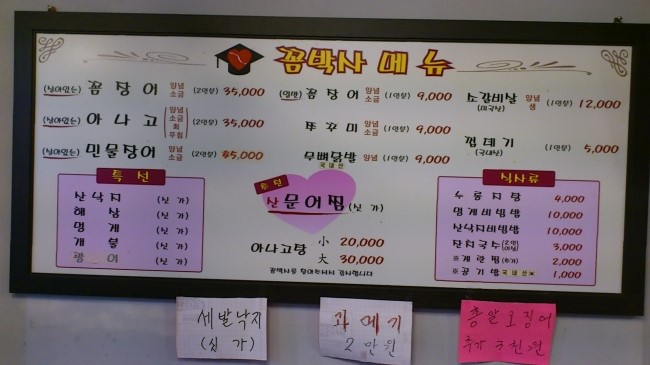 꼼박사 메뉴
(살아있는) 꼼장어 양념 소금 (2인분) 35,000
(살아있는) 아나고 양념 소금 회 무침 (2인분) 35,000
(살아있는) 민물장어 양념 소금 (2인분) 45,000
꼼장어 양념 소금 (1인분) 9,000
쭈꾸미 양념 소금 (1인분) 9,000
무뼈닭발 양념 (1인분) 9,000
국내산
소갈비살 양념 생 (1인분) 12,000
(미국산)
껍데기 (1인분) 5,000
(국내산)
특선
산낙지 (싯가)
해삼 (싯가)
멍게 (싯가)
개불 (싯가)
광어 (싯가)
특선
산 문어찜 (싯가)
아나고탕 小 20,000
大 30,000
꼼박사를 찾아주셔서 감사합니다
식사류
누룽지탕 4,000
멍게비빔밥 10,000
산낙지비빔밥 10,000
잔치국수 3,000
※계란찜(추가) 2,000
※공기밥 국내산 1,000
세발낙지
(싯가)
과메기
2만원
총알오징어